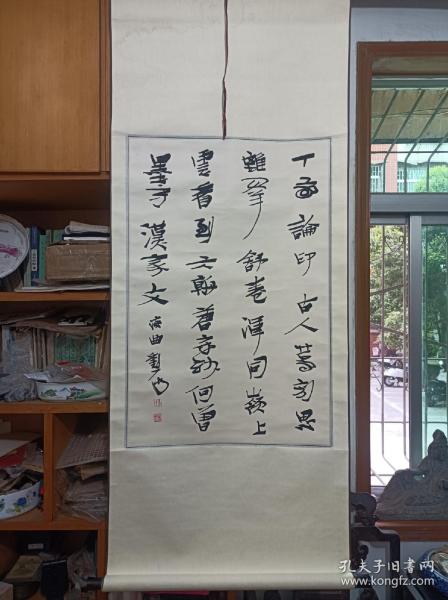 丁敬論印古人篆刻思
離羣舒卷渾同嶺上
雲看到六朝唐宋妙何曾
墨守漢家文
孔夫子旧书网
www.kongfz.com